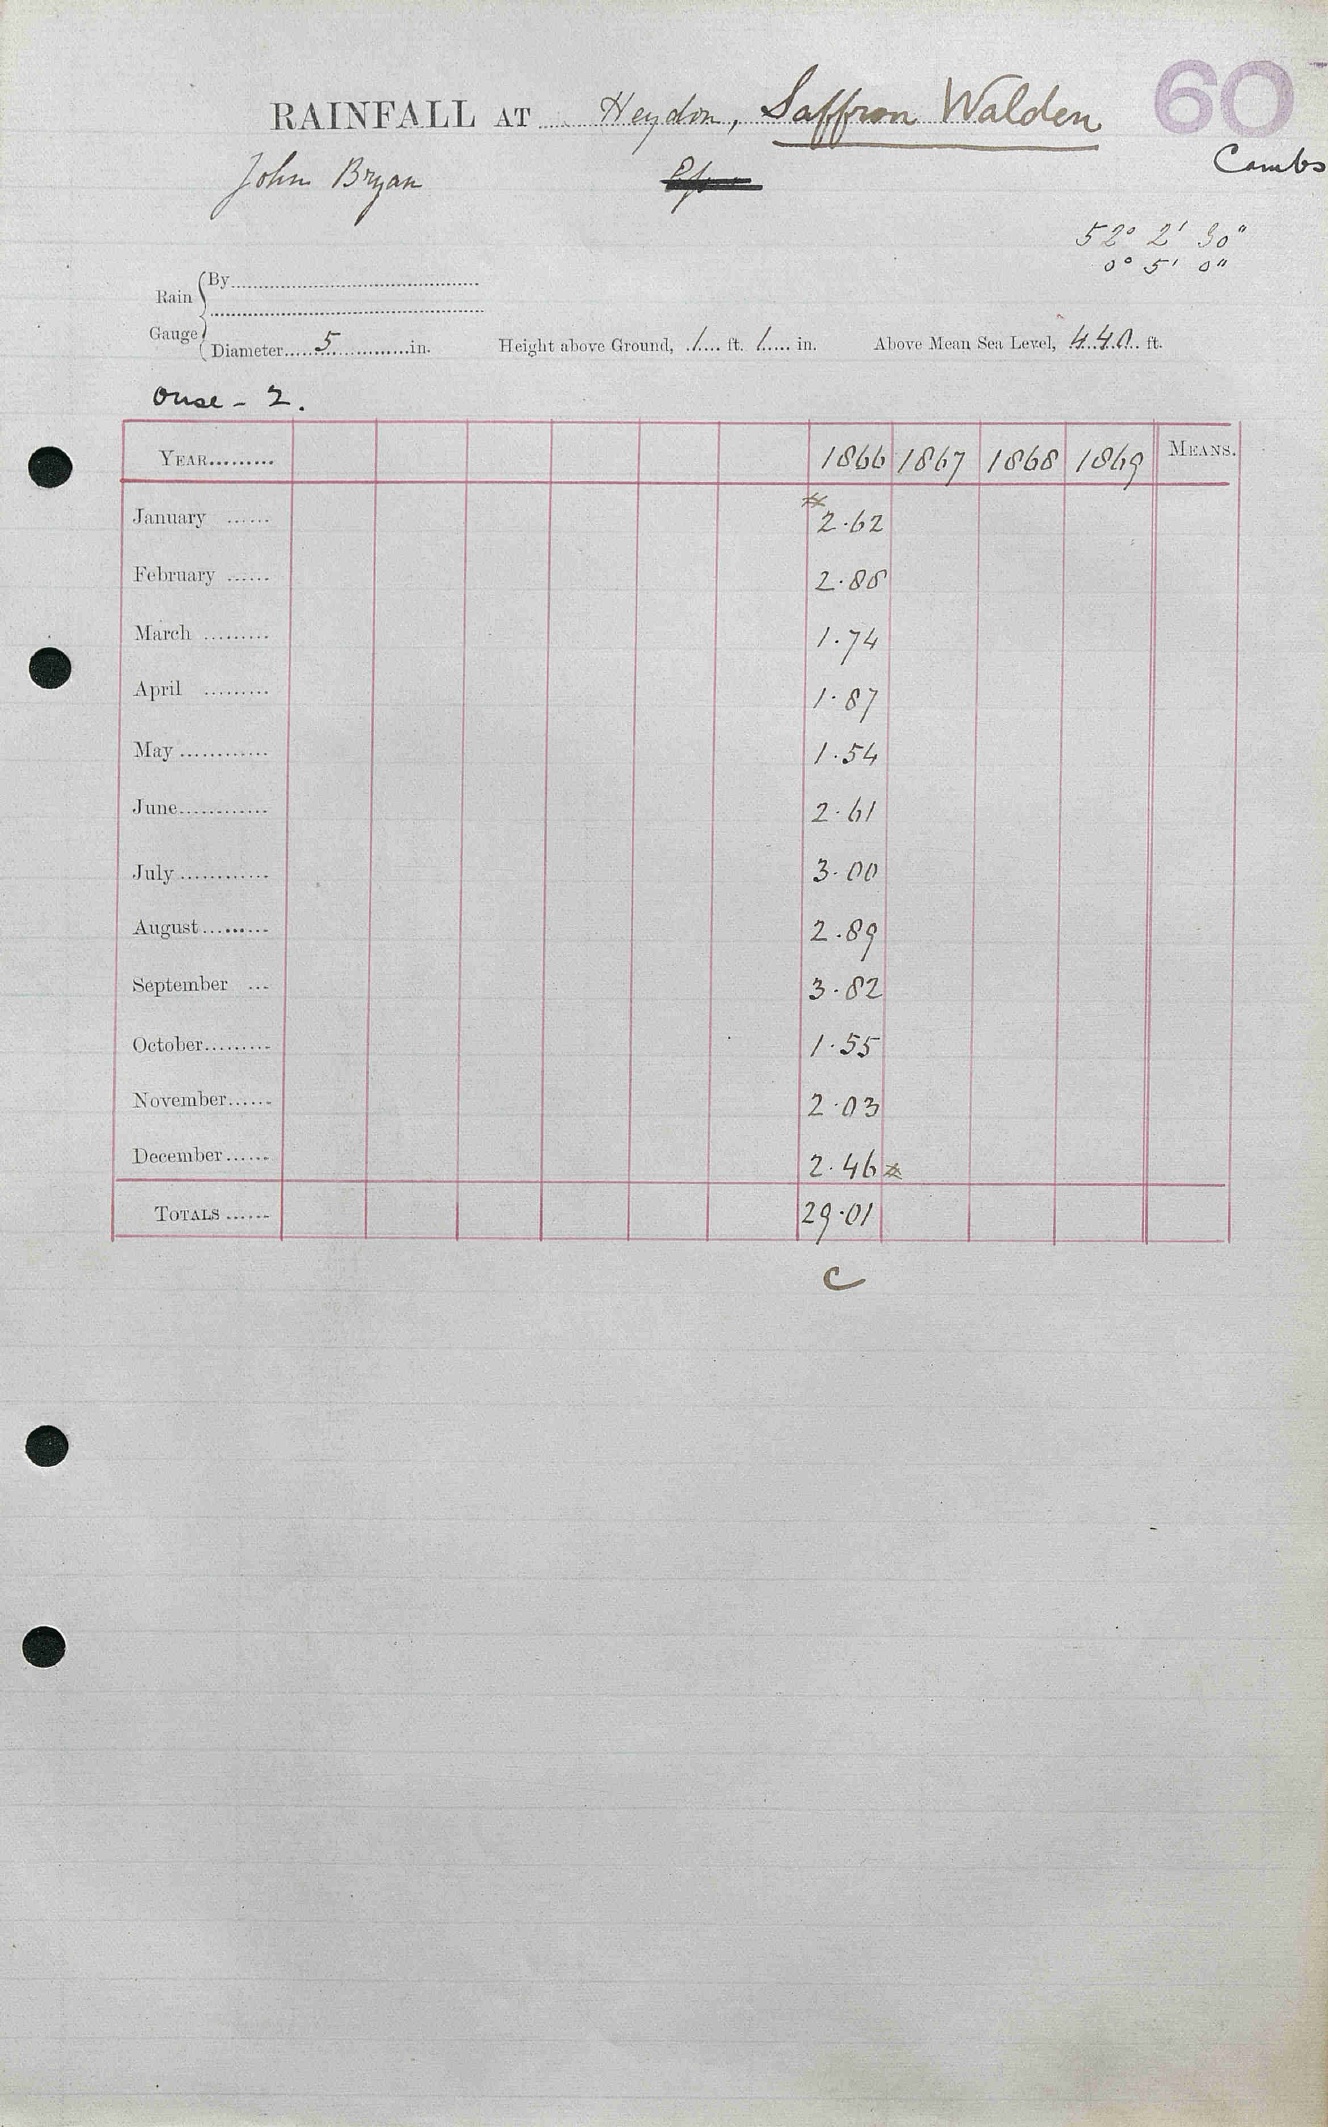 60
RAINFALL AT Heydon, Saffron Walden
Cambs
John Bryan
52° 2' 30"
0° 5' 0"
Rain Gauge
By
Diameter 5 in. Height above Ground, 1 ft. 1 in. Above Mean Sea Level, 440 ft.
Ouse - 2.
YEAR 1866 1867 1868 1869 MEANS.
January 2.62
February 2.88
March 1.74
April 1.87
May 1.54
June 2.61
July 3.00
August 2.89
September 3.82
October 1.55
November 2.03
December 2.46
TOTALS 29.01
C